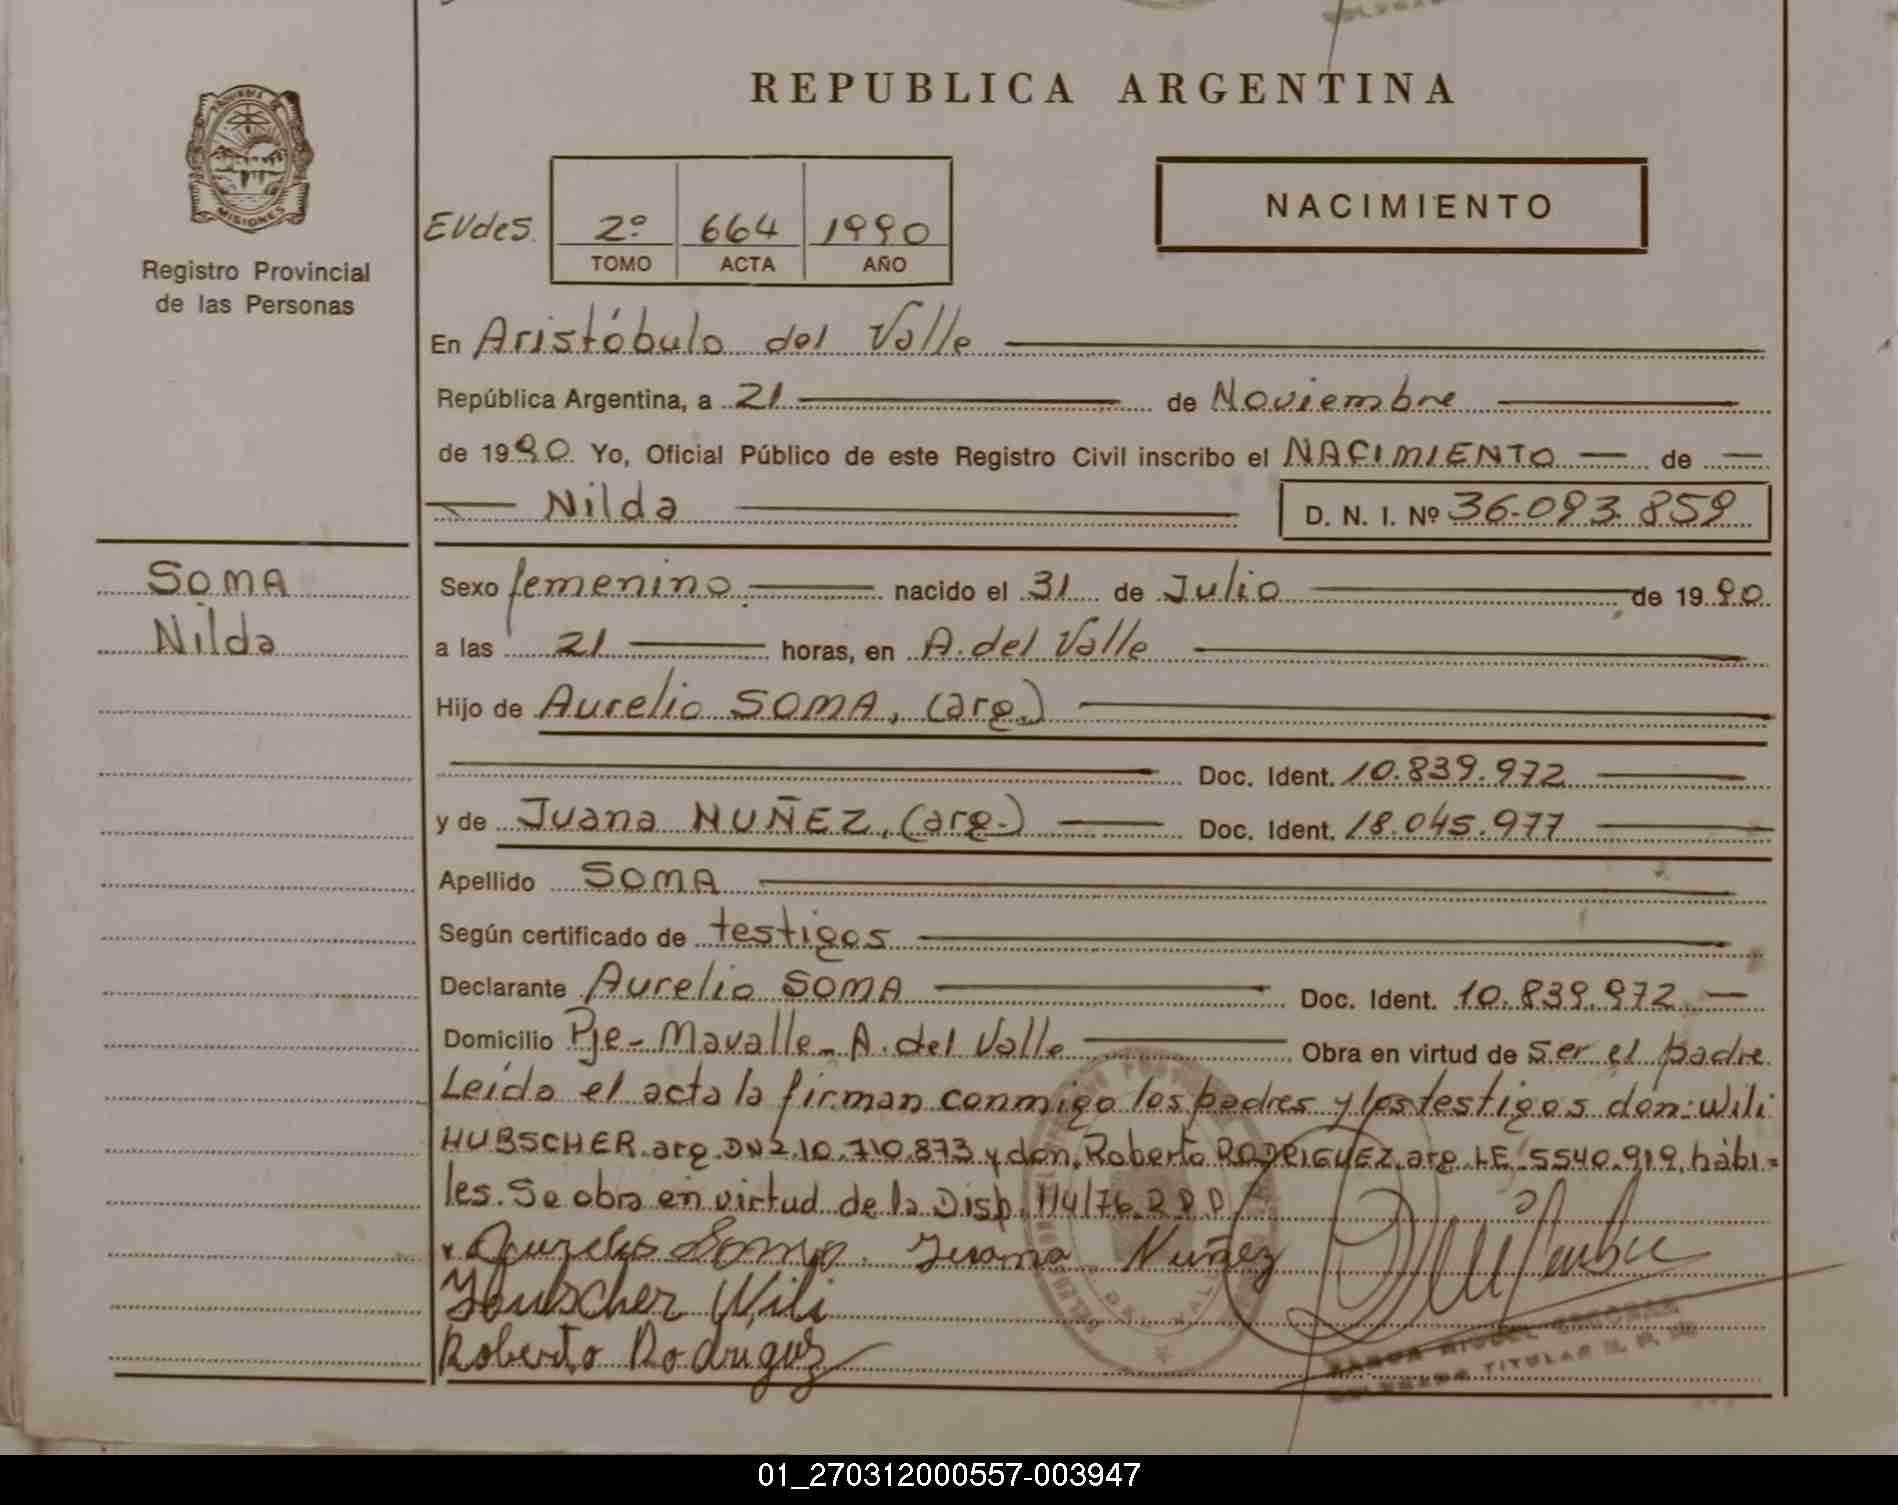 REPUBLICA ARGENTINA
PROVINCIA DE
MISIONES
Registro Provincial
de las Personas
EVdes. 2º 664 1990
TOMO ACTA AÑO
NACIMIENTO
En Aristóbulo del Valle
República Argentina, a 21 de Noviembre
de 1990 Yo, Oficial Público de este Registro Civil inscribo el NACIMIENTO de
Nilda D. N. I. Nº 36.093.859
SOMA
Nilda
Sexo femenino nacido el 31 de Julio de 1990
a las 21 horas, en A. del Valle
Hijo de Aurelio SOMA, (arg.)
Doc. Ident. 10.839.972
y de Juana NUÑEZ, (arg.) Doc. Ident. 18.045.977
Apellido SOMA
Según certificado de testigos
Declarante Aurelio SOMA Doc. Ident. 10.839.972
Domicilio Pje- Mavalle- A. del Valle Obra en virtud de Ser el padre
Leída el acta la firman conmigo los padres y los testigos don: Wili
HUBSCHER. arg. DNI. 10.710.873 y don, Roberto RODRIGUEZ. arg. LE. 5540.919, hábi=
les. Se obra en virtud de la Disp. 114/76.
Aurelio Soma. Juana Nuñez
Hubscher Wili
Roberto Rodriguez
TITULAR
01_270312000557-003947